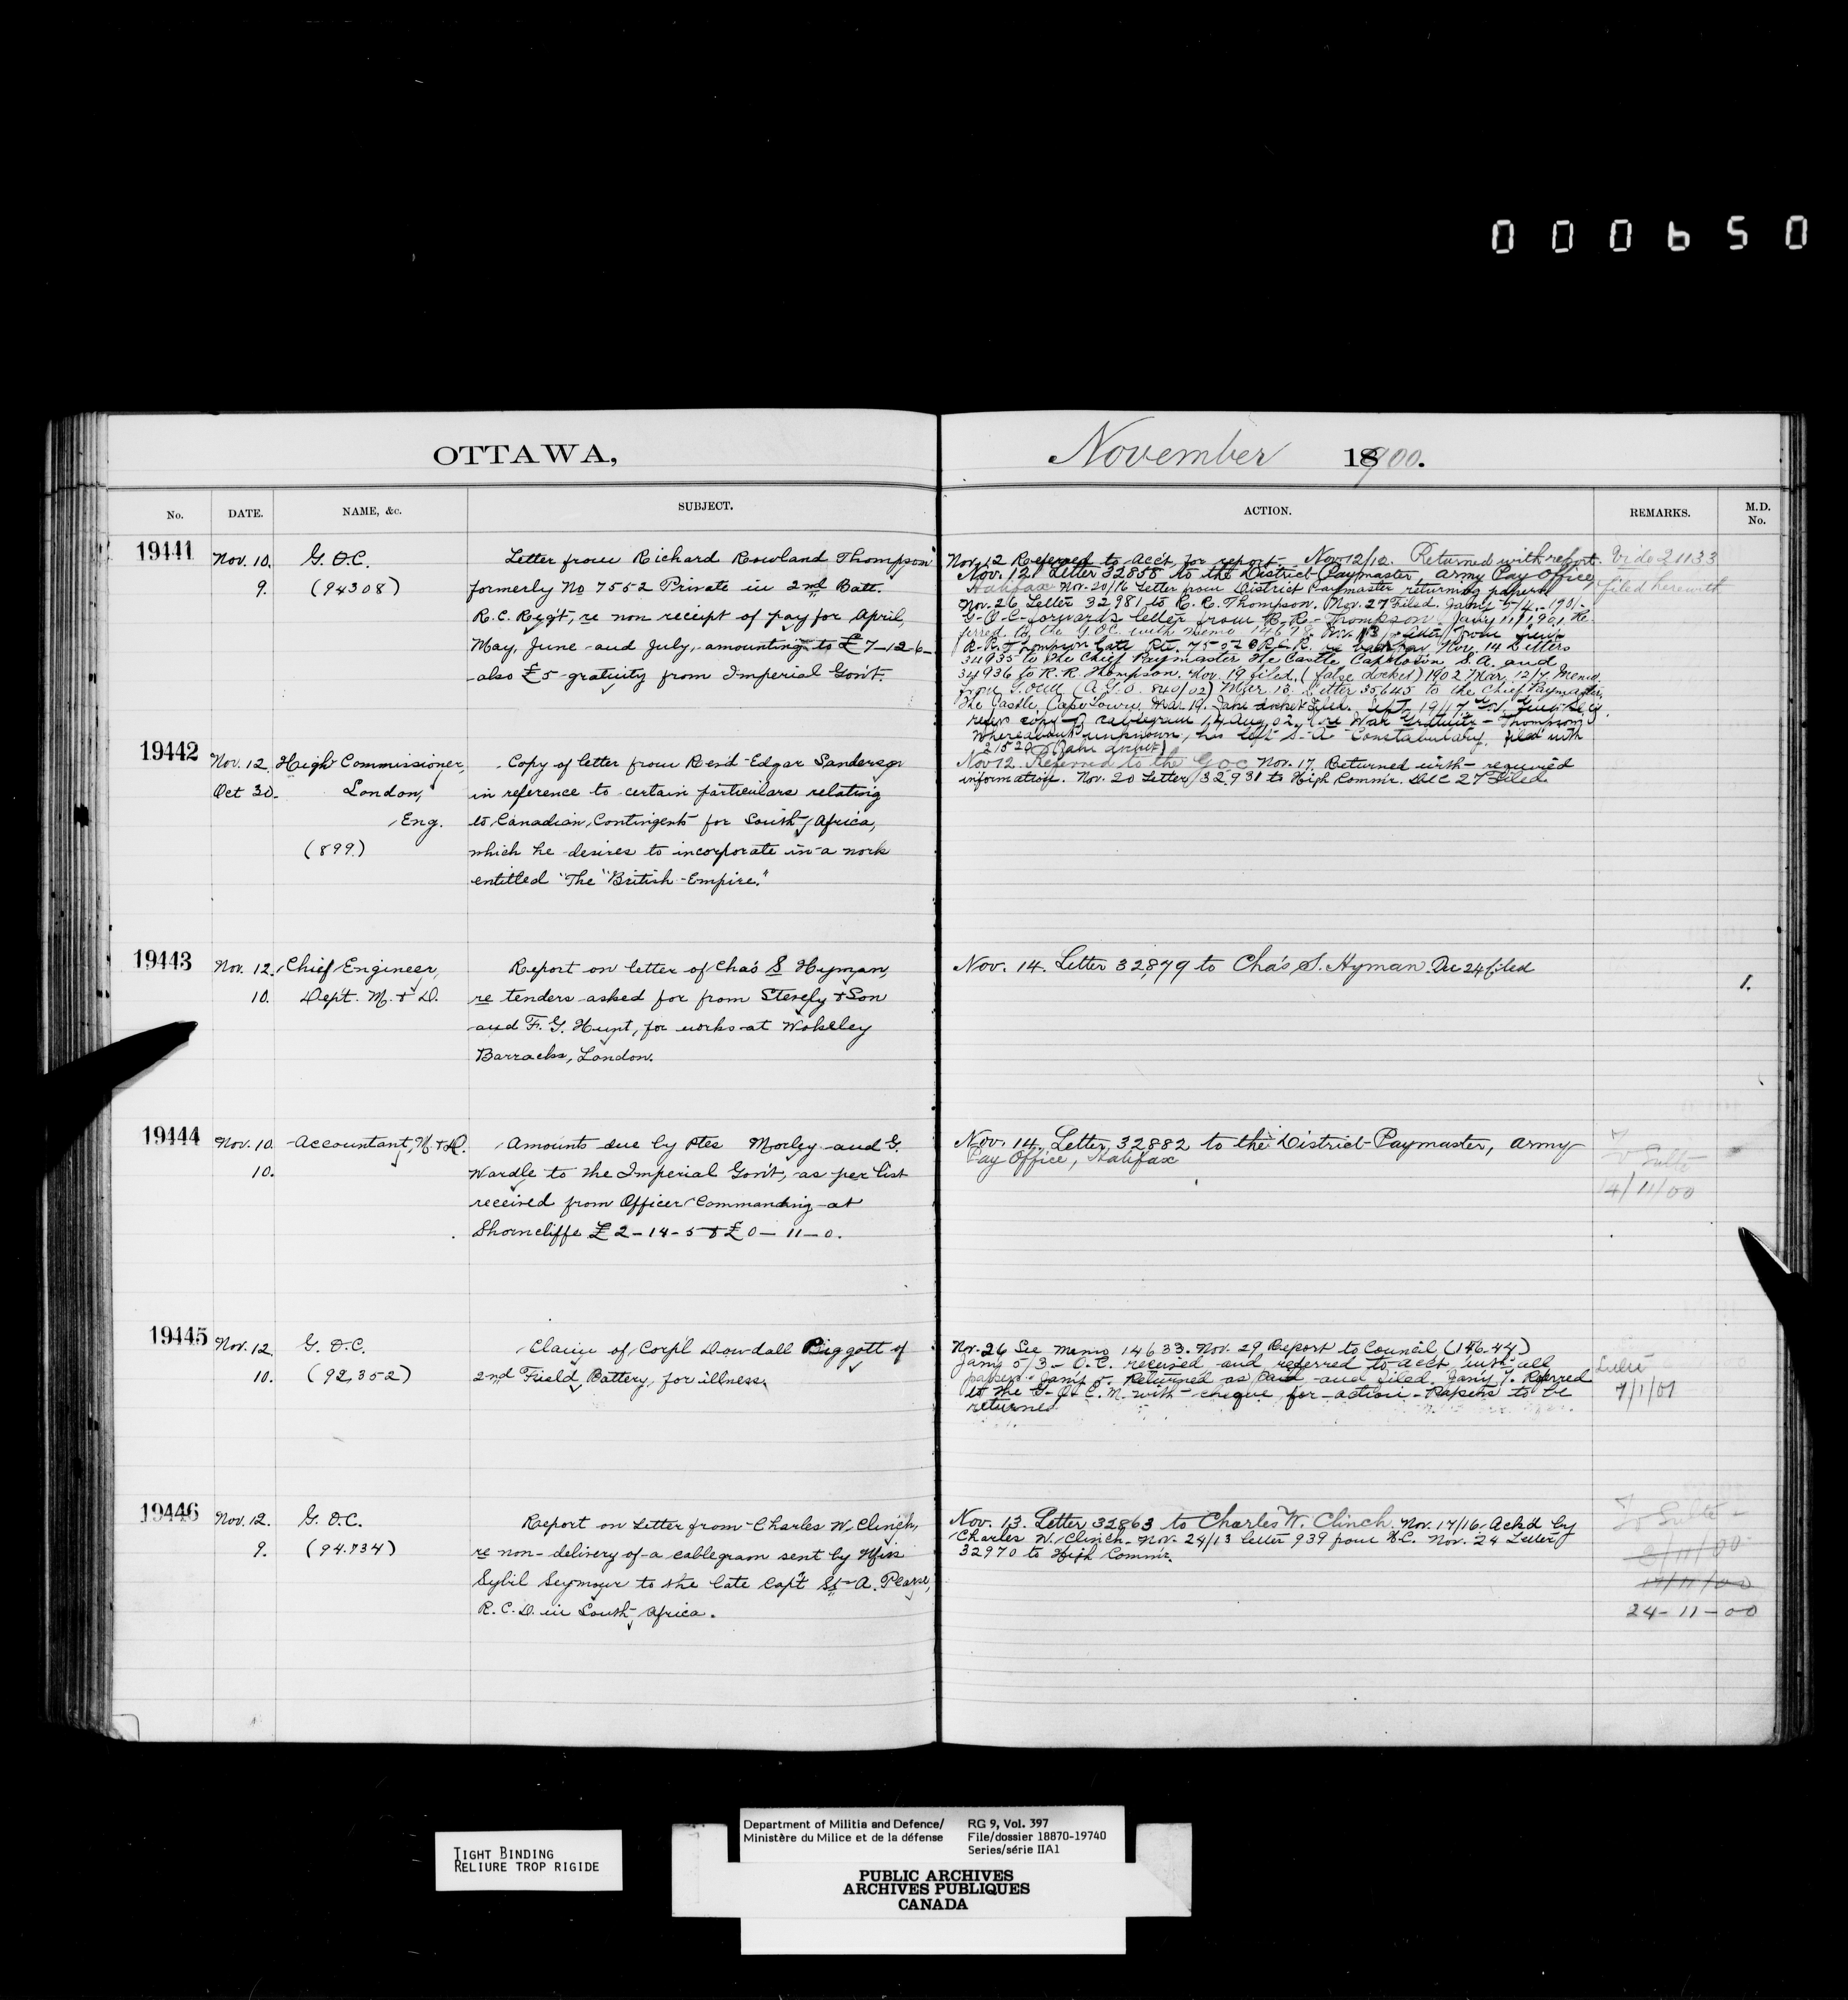 000650
OTTAWA, November 1900.
No. DATE. NAME, &c. SUBJECT. ACTION. REMARKS. M.D. No.
19441
Nov. 10. G.O.C.
9. (94308)
Letter from Richard Rowland Thompson
formerly No 7552 Private in 2nd Batt.
R.C. Reg't, re non receipt of pay for April,
May, June and July, amounting to £7-12-6-
also £5 gratuity from Imperial Gov't.
Nov. 12 Referred to Acc't for report. Nov 12/12. Returned with report.
Nov. 12. Letter 32855 to the District Paymaster, Army Pay Office,
Halifax Nov. 20/16 Letter from District Paymaster returning papers
Nov. 26 Letter 32981 to R. R. Thompson. Nov. 27 Filed. Jany 5/4. 1901.
G.O.C. forwards letter from R.R. Thompson. Jany 11, 1901. Re-
ferred to the G.O.C. with memo 14678.
R.R. Thompson late Pte. 7552 R.C.R. Nov. 14 Letters
34935 to the Chief Paymaster The Castle, Capetown S.A. and
34936 to R.R. Thompson. Nov. 19 filed. (false docket) 1902 Mar. 12/7 Memo
from (A.G.O. 840/02) Mar. 13. Letter 35645 to the Chief Paymaster,
The Castle, Cape Town. Mar 19. Filed. Sept. 19/17
copy of cablegram 14 Aug. 02, re War Gratuity - Thompson's
whereabouts unknown, has left S.A. Constabulary. filed with
21520 (false docket)
Vide 21133
filed herewith
19442
Nov. 12. High Commissioner,
Oct 30. London,
Eng.
(899)
Copy of letter from Rev'd Edgar Sanderson
in reference to certain particulars relating
to Canadian Contingents for South Africa,
which he desires to incorporate in a work
entitled "The "British Empire."
Nov 12. Referred to the G.O.C. Nov. 17. Returned with required
information. Nov. 20 Letter 32931 to High Commr. Dec 27 Filed.
19443
Nov. 12. Chief Engineer,
10. Dep't. M. & D.
Report on letter of Cha's S Hyman,
re tenders asked for from Stevely & Son
and F. G. Hunt, for works at Wolseley
Barracks, London.
Nov. 14. Letter 32,879 to Cha's S. Hyman. Dec 24 filed
1.
19444
Nov. 10. Accountant, M. & D.
10.
Amounts due by Ptes Morley and G.
Wardle to the Imperial Gov't, as per list
received from Officer Commanding at
Shorncliffe £2-14-5 & £0-11-0.
Nov. 14. Letter 32882 to the District Paymaster, Army
Pay Office, Halifax
Sulte
14/11/00
19445
Nov. 12. G.O.C.
10. (92,352)
Claim of Corp'l Dowdall Piggott of
2nd Field Battery, for illness.
Nov. 26 See memo 14633. Nov. 29 Report to Council (14644)
Jany 5/3 - O.C. received and referred to Acc't with all
papers. Jany 5. Returned as paid and filed. Jany 7. Referred
to the G.O.C.M. with cheque for action. Papers to be
returned.
7/1/01
19446
Nov. 12. G.O.C.
9. (94.734)
Report on letter from Charles W. Clinch,
re non-delivery of a cablegram sent by Miss
Sybil Seymour to the late Capt St A. Pearse,
R.C.D. in South Africa.
Nov. 13. Letter 32863 to Charles W. Clinch. Nov. 17/16. Ackd by
Charles W. Clinch. Nov. 24/13 letter 939 from H.C. Nov. 24 Letter
32970 to High Commr.
Sulte
24-11-00
TIGHT BINDING
RELIURE TROP RIGIDE
Department of Militia and Defence/
Ministère du Milice et de la défense
RG 9, Vol. 397
File/dossier 18870-19740
Series/série IIA1
PUBLIC ARCHIVES
ARCHIVES PUBLIQUES
CANADA